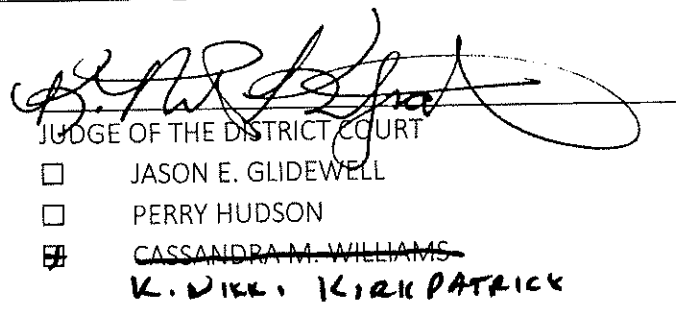 K. Nikki Kirkpatrick
JUDGE OF THE DISTRICT COURT
☐ JASON E. GLIDEWELL
☐ PERRY HUDSON
☒ CASSANDRA M. WILLIAMS
K. NIKKI KIRKPATRICK